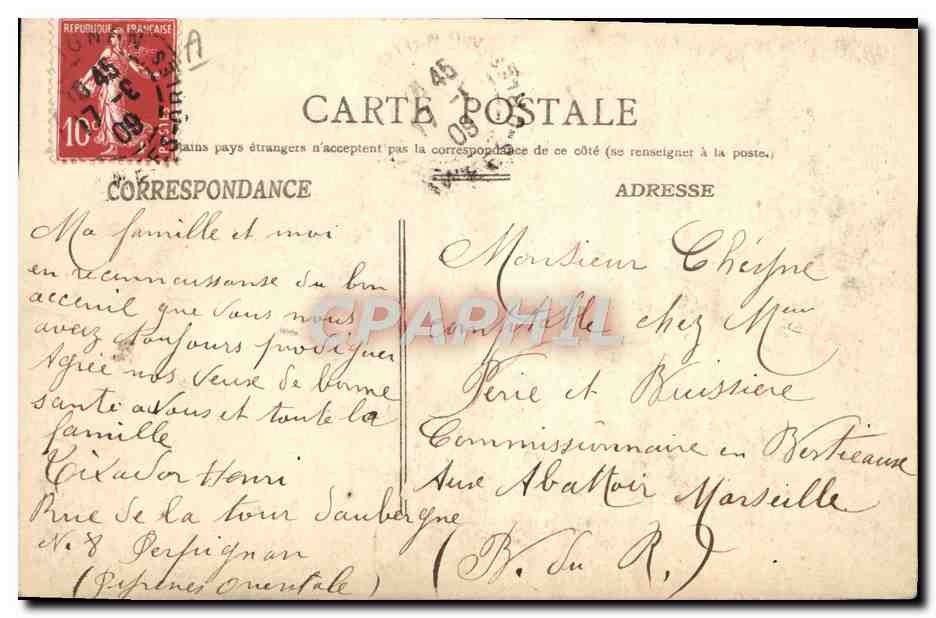 REPUBLIQUE FRANÇAISE
10c POSTES
A
45
17 - 3
09
45
17 - 1
09
CARTE POSTALE
tains pays étrangers n'acceptent pas la correspondance de ce côté (se renseigner à la poste.)
CORRESPONDANCE
Ma famille et moi
en reconnaissanse du bon
acceuil que vous nous
avez toujours prodiguer
Agrée nos veux de bonne
santé a vous et toute la
famille
Tixador Henri
Rue de la tour daubergne
N. 8 Perpignan
(Pyrenes orientale)
ADRESSE
Monsieur Chéïpne
comptable chez Meur
Périe et Buissiere
Commissionnaire en Bestieaux
Aux Abattoir Marseille
(B. du R.)
CPAPHIL